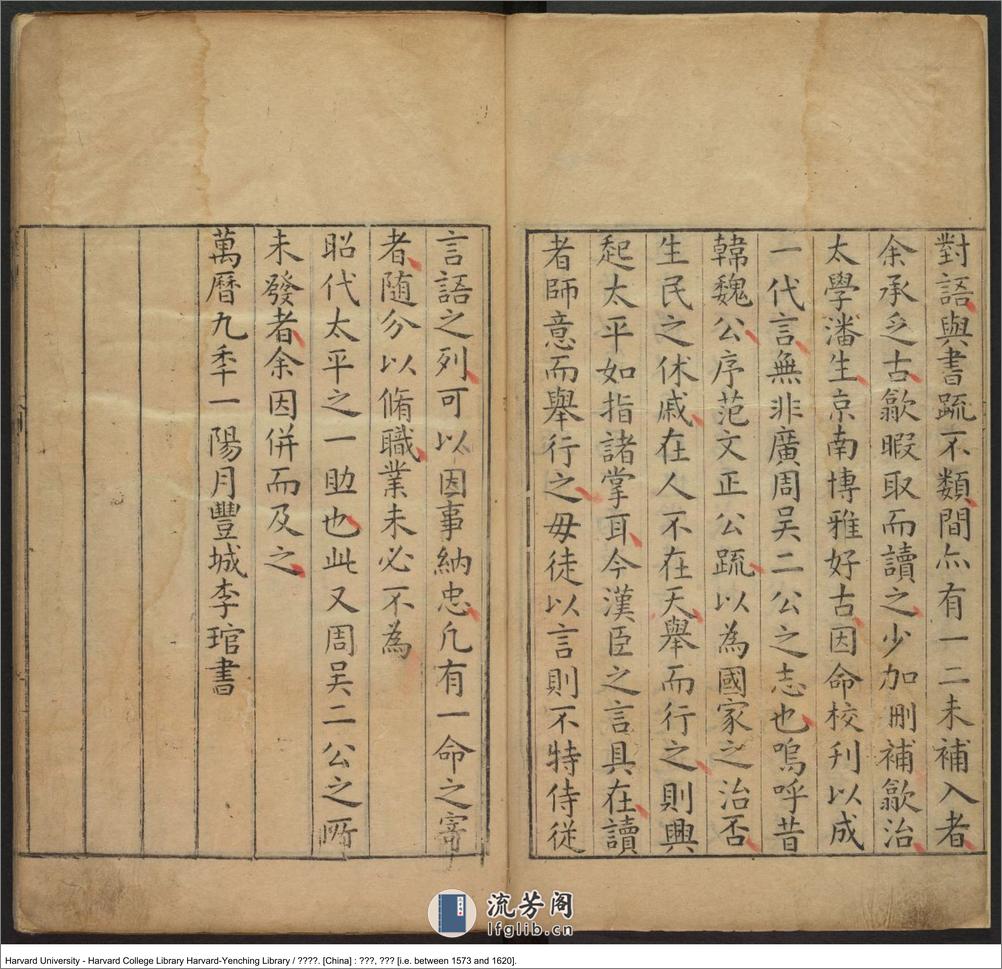 對語與書䟽不類間亦有一二未補入者
余承乏古歙暇取而讀之少加刪補歙治
太學潘生京南博雅好古因命校刋以成
一代言無非廣周吴二公之志也嗚呼昔
韓魏公序范文正公䟽以為國家之治否
生民之休戚在人不在天舉而行之則興
起太平如指諸掌耳今漢臣之言具在讀
者師意而舉行之毋徒以言則不特侍従
言語之列可以因事納忠凢有一命之寄
者随分以脩職業未必不為
昭代太平之一助也此又周吴二公之所
未發者余因併而及之
萬曆九秊一陽月豐城李琯書
流芳阁
lfglib.cn
Harvard University - Harvard College Library Harvard-Yenching Library / ????. [China] : ???, ??? [i.e. between 1573 and 1620].